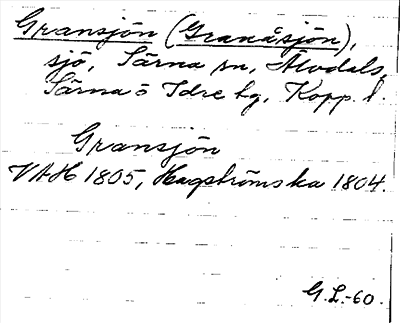 Gransjön (Granåsjön),
sjö, Särna sn, Älvdals,
Särna o Idre tg, Kopp. l.
Gransjön
VAH 1805, Hagströmska 1804.
G.L.-60.